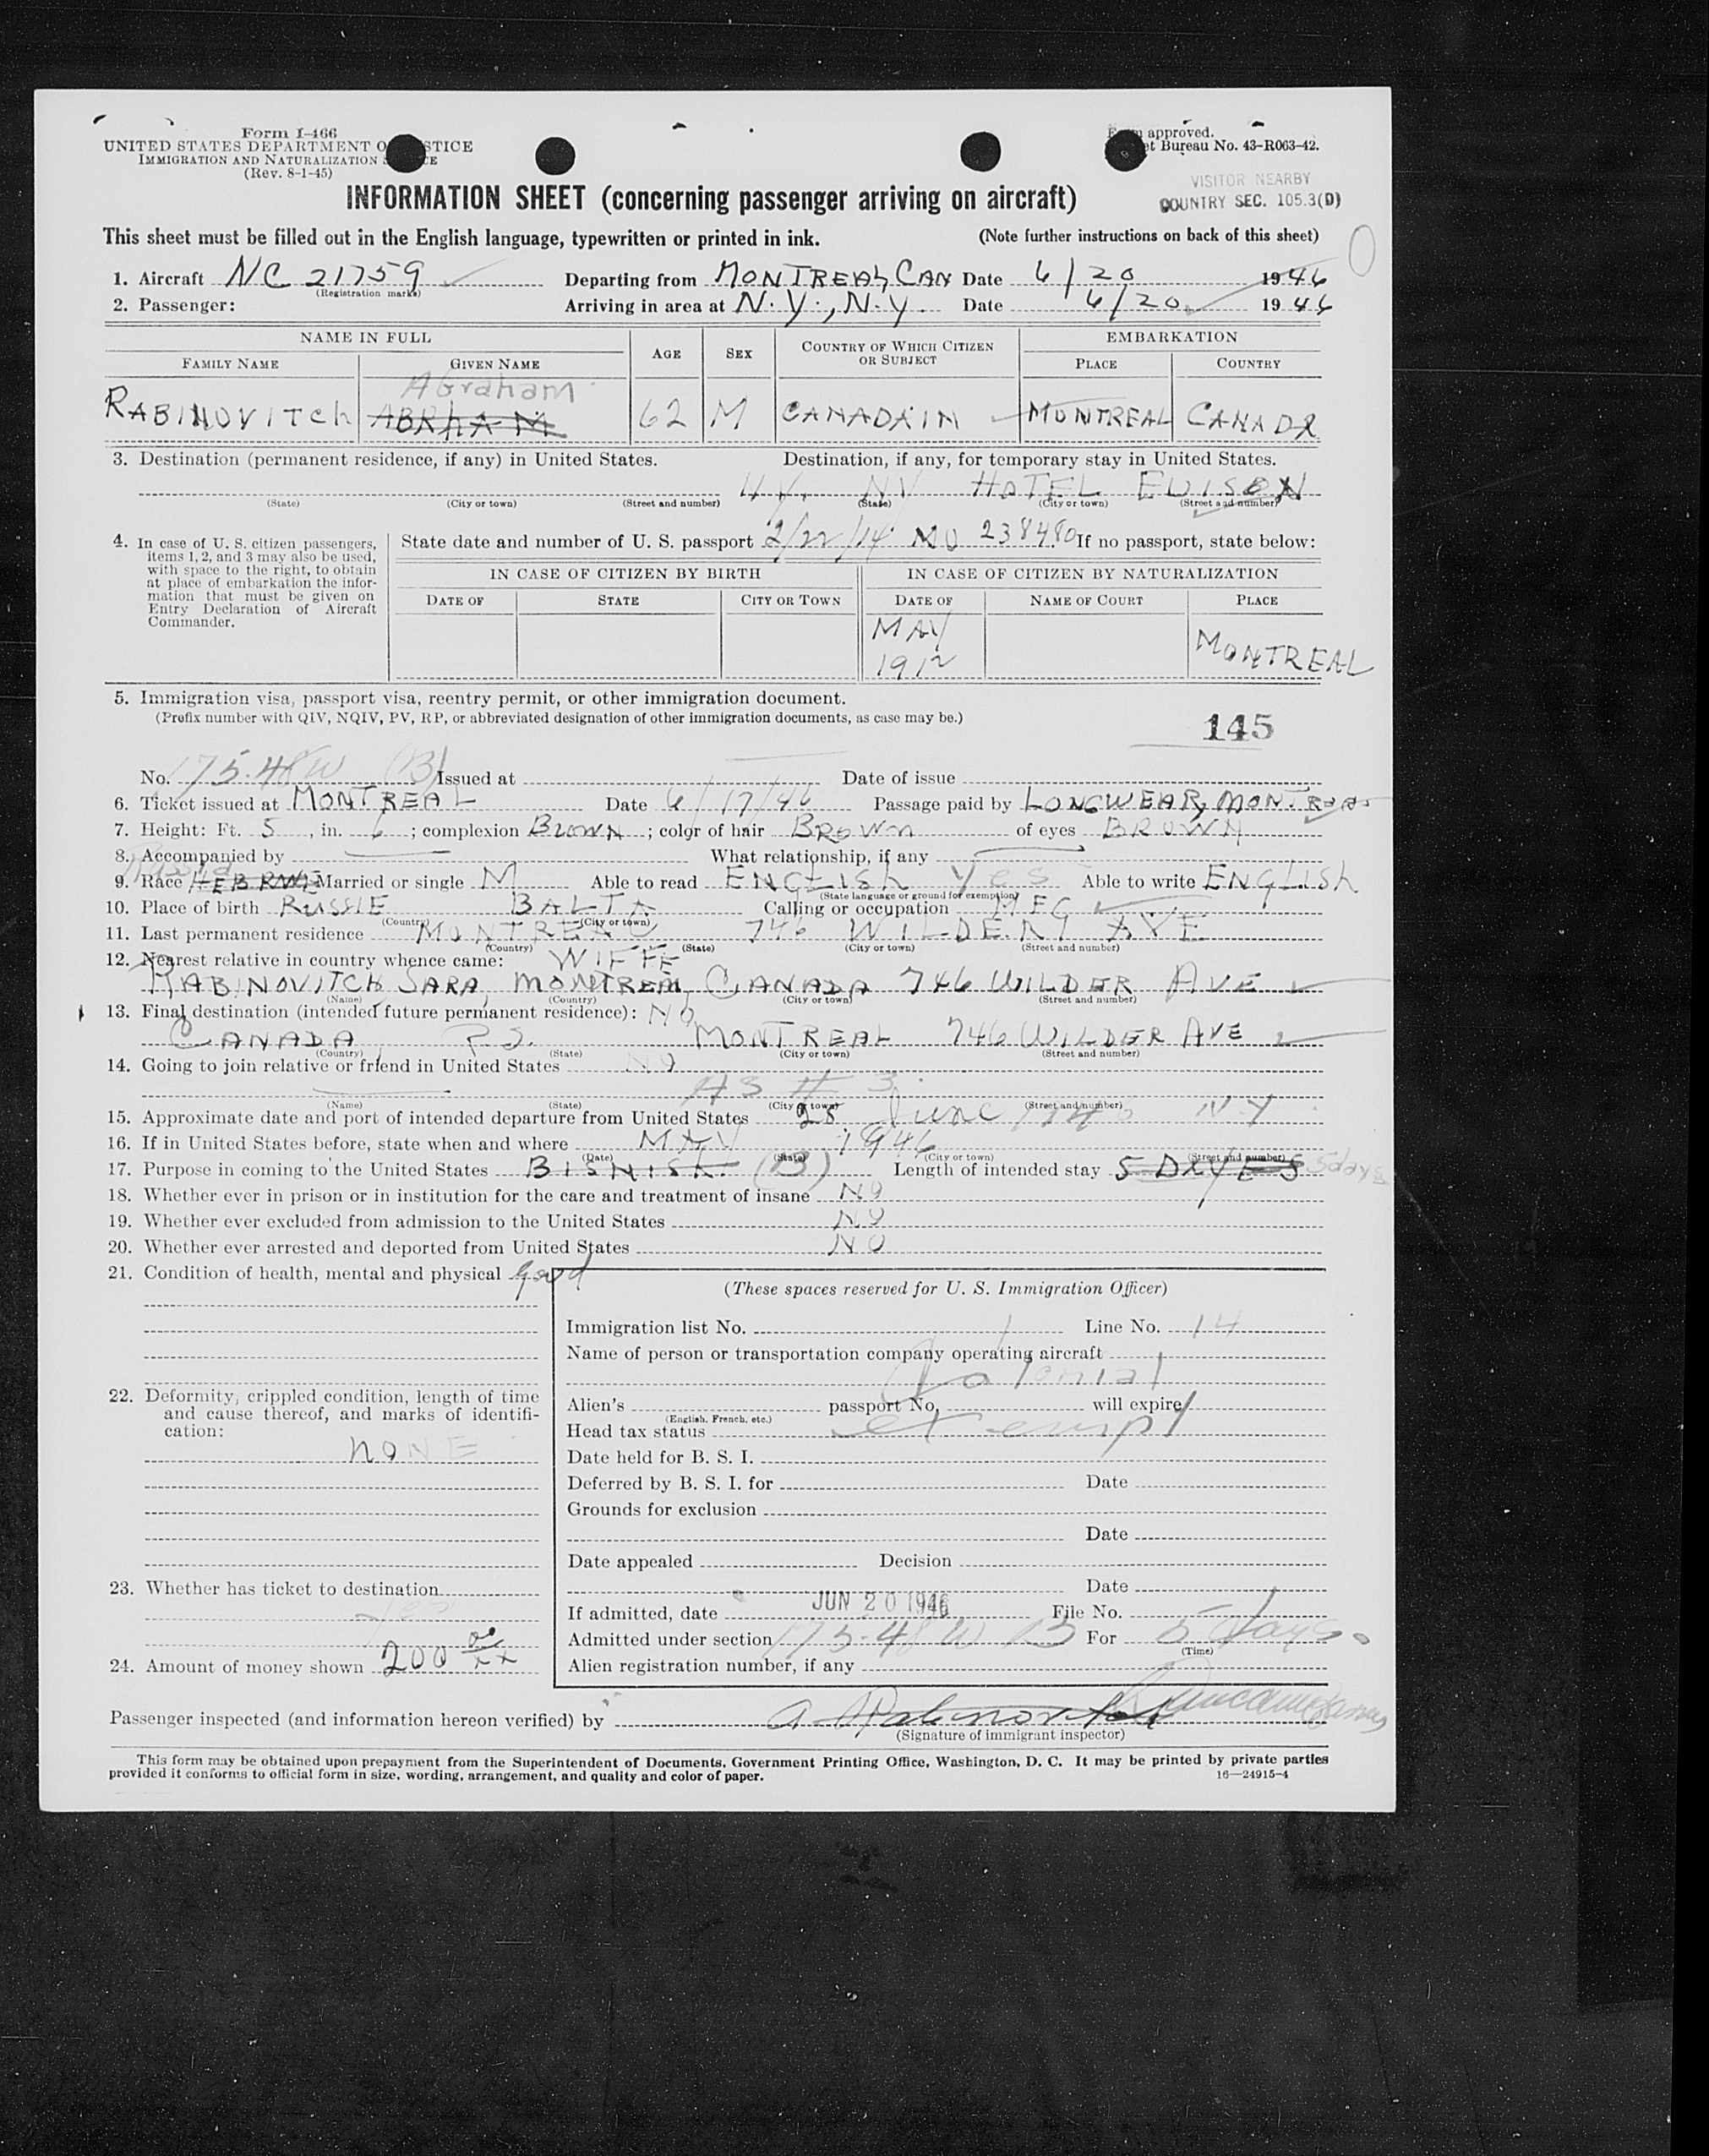 Form I-466
UNITED STATES DEPARTMENT O STICE
IMMIGRATION AND NATURALIZATION S E
(Rev. 8-1-45)
approved.
et Bureau No. 43-R063-42.
VISITOR NEARBY
COUNTRY SEC. 105.3(D)
INFORMATION SHEET (concerning passenger arriving on aircraft)
This sheet must be filled out in the English language, typewritten or printed in ink. (Note further instructions on back of this sheet)
1. Aircraft NC 21759 Departing from MONTREAL, CAN Date 6/20 1946
(Registration marks)
2. Passenger: Arriving in area at N.Y., N.Y. Date 6/20 1946
NAME IN FULL AGE SEX COUNTRY OF WHICH CITIZEN OR SUBJECT EMBARKATION
FAMILY NAME GIVEN NAME PLACE COUNTRY
Abraham
RABINOVITCH ABRHAM 62 M CANADAIN MONTREAL CANADA
3. Destination (permanent residence, if any) in United States. Destination, if any, for temporary stay in United States.
N.Y. NY HOTEL EDISON
(State) (City or town) (Street and number) (State) (City or town) (Street and number)
4. In case of U. S. citizen passengers, items 1, 2, and 3 may also be used, with space to the right, to obtain at place of embarkation the information that must be given on Entry Declaration of Aircraft Commander.
State date and number of U. S. passport 2/22/14 MO 238480 If no passport, state below:
IN CASE OF CITIZEN BY BIRTH IN CASE OF CITIZEN BY NATURALIZATION
DATE OF STATE CITY OR TOWN DATE OF NAME OF COURT PLACE
MAY
1912 MONTREAL
5. Immigration visa, passport visa, reentry permit, or other immigration document.
(Prefix number with QIV, NQIV, PV, RP, or abbreviated designation of other immigration documents, as case may be.)
145
No. 175.48W (B) Issued at Date of issue
6. Ticket issued at MONTREAL Date 6/17/46 Passage paid by LONGWEAR, MON.TREAS
7. Height: Ft. 5, in. 6; complexion BROWN; color of hair BROWN of eyes BROWN
8. Accompanied by What relationship, if any
9. Race Married or single M Able to read ENGLISH Yes Able to write ENGLISH
(State language or ground for exemption)
10. Place of birth RUSSIE BALTA Calling or occupation MFG
(Country) (City or town)
11. Last permanent residence MONTREAL 746 WILDERT AVE
(Country) (State) (City or town) (Street and number)
12. Nearest relative in country whence came: WIFFE
RABINOVITCH SARA, MONTREAL, CANADA 746 WILDER AVE
(Name) (Country) (City or town) (Street and number)
13. Final destination (intended future permanent residence): NO
CANADA MONTREAL 746 WILDER AVE
(Country) (State) (City or town) (Street and number)
14. Going to join relative or friend in United States NO
AS # 3
(Name) (State) (City or town) (Street and number)
15. Approximate date and port of intended departure from United States 25 June 1946 NY
16. If in United States before, state when and where MAY 1946
(Date) (State) (City or town) (Street and number)
17. Purpose in coming to the United States BISNISK. (B) Length of intended stay 5 DAYES 5 days
18. Whether ever in prison or in institution for the care and treatment of insane NO
19. Whether ever excluded from admission to the United States NO
20. Whether ever arrested and deported from United States NO
21. Condition of health, mental and physical good
(These spaces reserved for U. S. Immigration Officer)
Immigration list No. 1 Line No. 14
Name of person or transportation company operating aircraft
Colonial
22. Deformity, crippled condition, length of time and cause thereof, and marks of identification:
NONE
Alien's passport No. will expire
(English, French, etc.)
Head tax status exempt
Date held for B. S. I.
Deferred by B. S. I. for Date
Grounds for exclusion
Date
Date appealed Decision
23. Whether has ticket to destination
Yes
Date
If admitted, date JUN 20 1946 File No.
Admitted under section 175.48 W B For 5 days
(Time)
24. Amount of money shown 200 00/xx
Alien registration number, if any
Passenger inspected (and information hereon verified) by A Rabinovitch
(Signature of immigrant inspector)
This form may be obtained upon prepayment from the Superintendent of Documents, Government Printing Office, Washington, D. C. It may be printed by private parties
provided it conforms to official form in size, wording, arrangement, and quality and color of paper. 16—24915-4